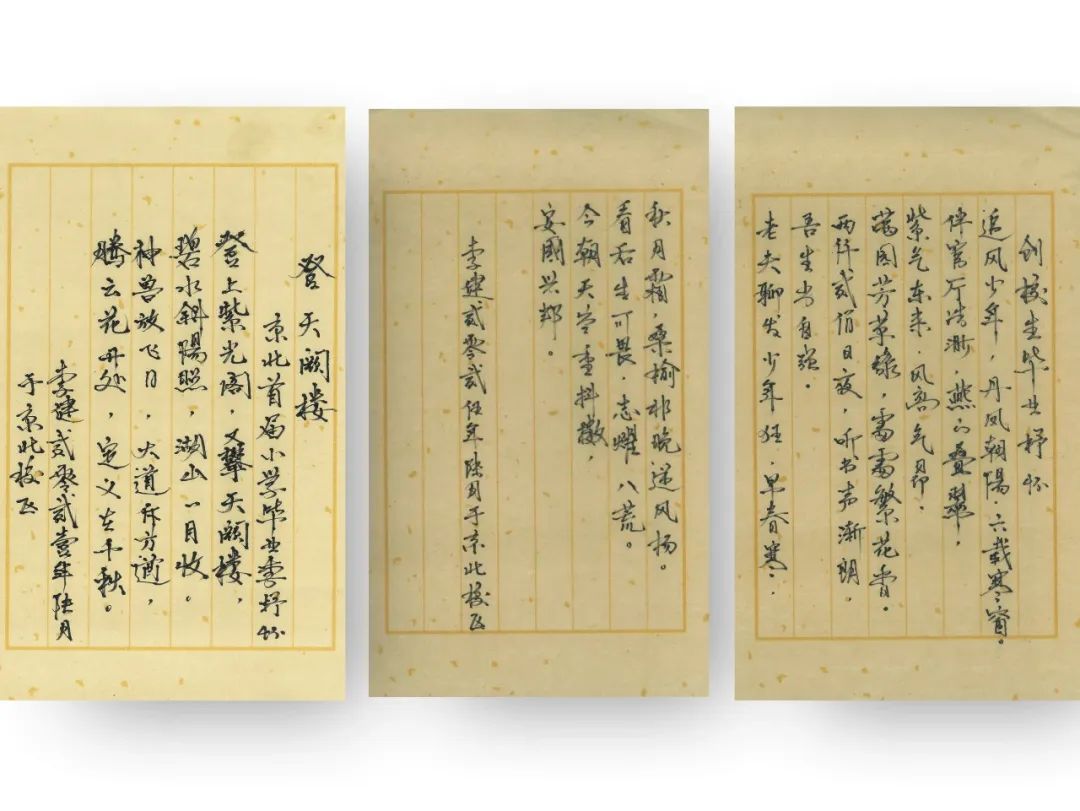 登天阙楼
京北首届小学毕业季抒怀
登上紫光阁，又攀天阙楼，
碧水斜陽照，湖山一目收。
神兽放飞日，大道斥方遒，
腾云花开处，定义在千秋。
李建贰零贰壹年陆月
于京北校区
创校生毕业抒怀
追风少年，丹凤朝陽。六载寒窗。
伴官厅浩渺，燕山叠翠，
紫气东来，风高气昂。
满园芳草绿，露露繁花香。
两仟贰佰日夜，听书声渐朗。
吾生当自强。
老夫聊发少年狂，早春寒，
秋月霜，桑榆非晚逆风扬。
看君生可畏，志耀八荒。
今朝天空重抖擞，
安國兴邦。
李建贰零贰年陆月于京北校区